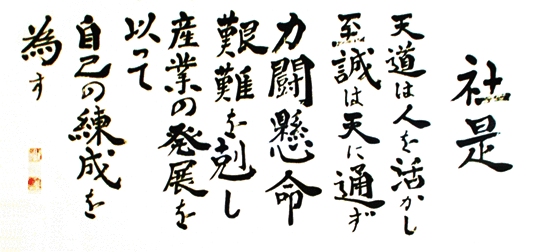 社是
天道は人を活かし
至誠は天に通ず
力闘懸命
艱難を剋し
産業の発展を
以って
自己の練成を
為す